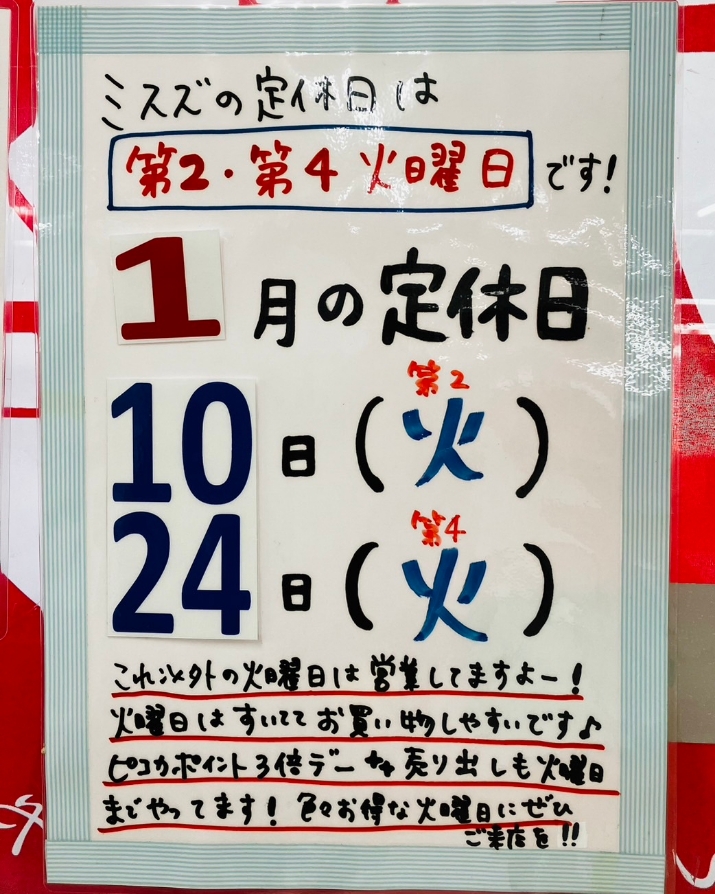 ミスズの定休日は
第2・第4 火曜日 です!
1月の定休日
第2
10日(火)
第4
24日(火)
これ以外の火曜日は営業してますよー!
火曜日はすいてて お買い物しやすいです♪
ピコカポイント3倍デーや 売り出しも火曜日
までやってます! 色々お得な火曜日にぜひ
ご来店を!!